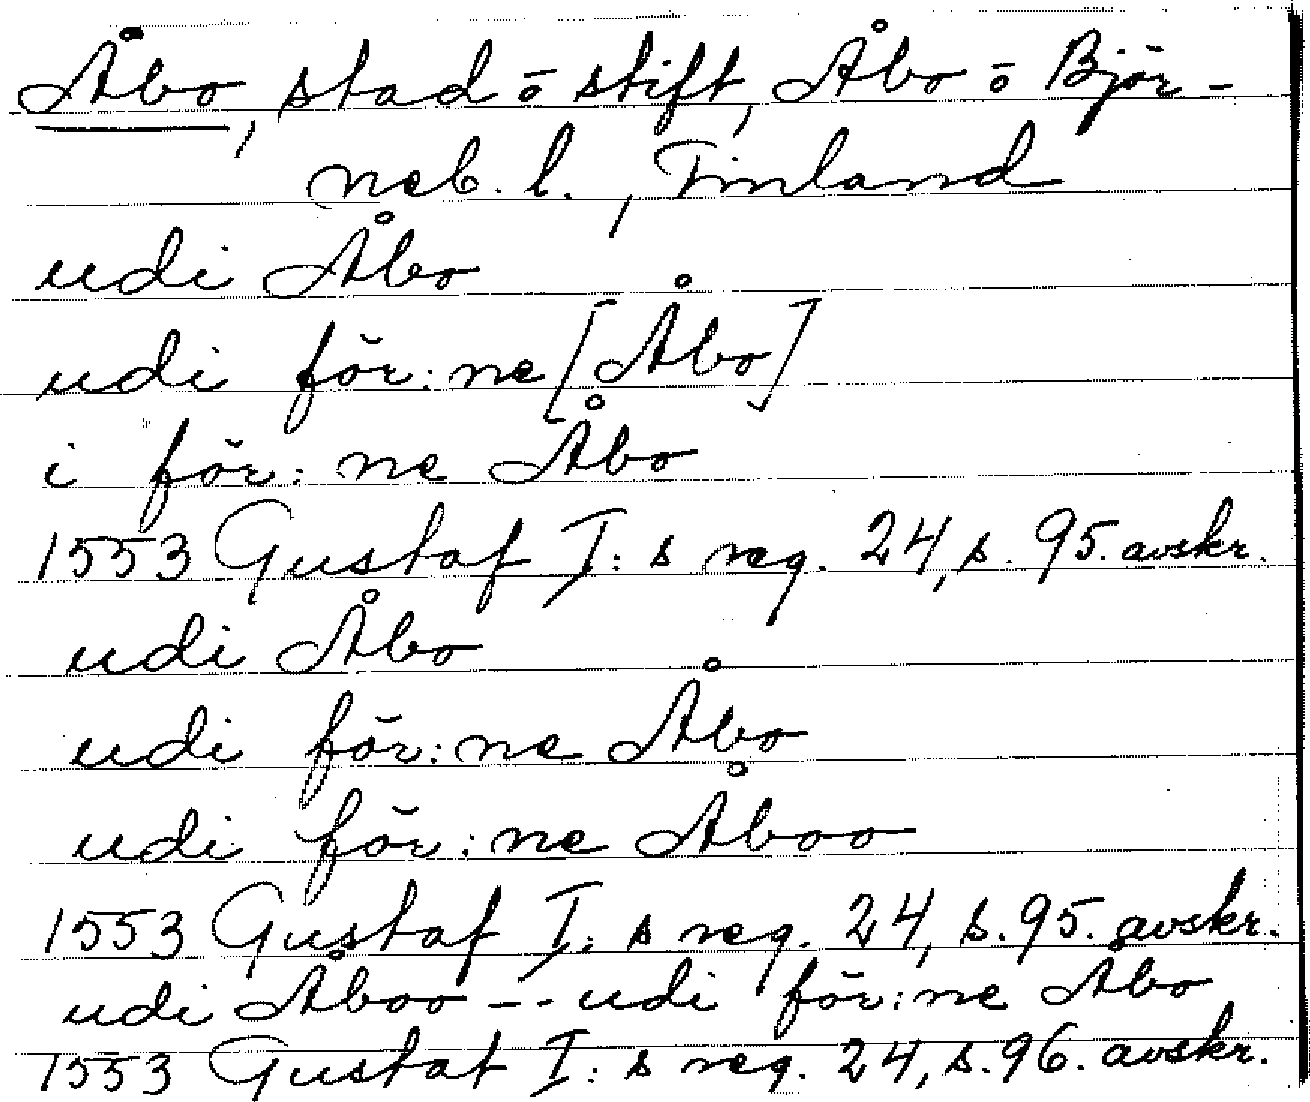 Åbo, stad o stift, Åbo o Björ-
neb. l., Finland
udi Åbo
udi för:ne [Åbo]
i för:ne Åbo
1553 Gustaf I:s reg. 24, s. 95. avskr.
udi Åbo
udi för:ne Åbo
udi för:ne Åboo
1553 Gustaf I:s reg. 24, s. 95. avskr.
udi Åboo --- udi för:ne Åbo
1553 Gustaf I:s reg. 24, s. 96. avskr.